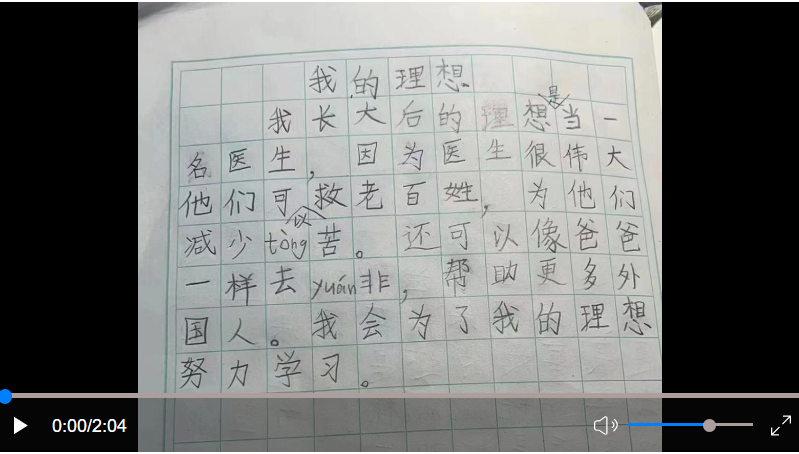 我的理想
我长大后的理想是当一
名医生，因为医生很伟大
他们可以救老百姓，为他们
减少tòng苦。还可以像爸爸
一样去yuán非，帮助更多外
国人。我会为了我的理想
努力学习。
0:00/2:04